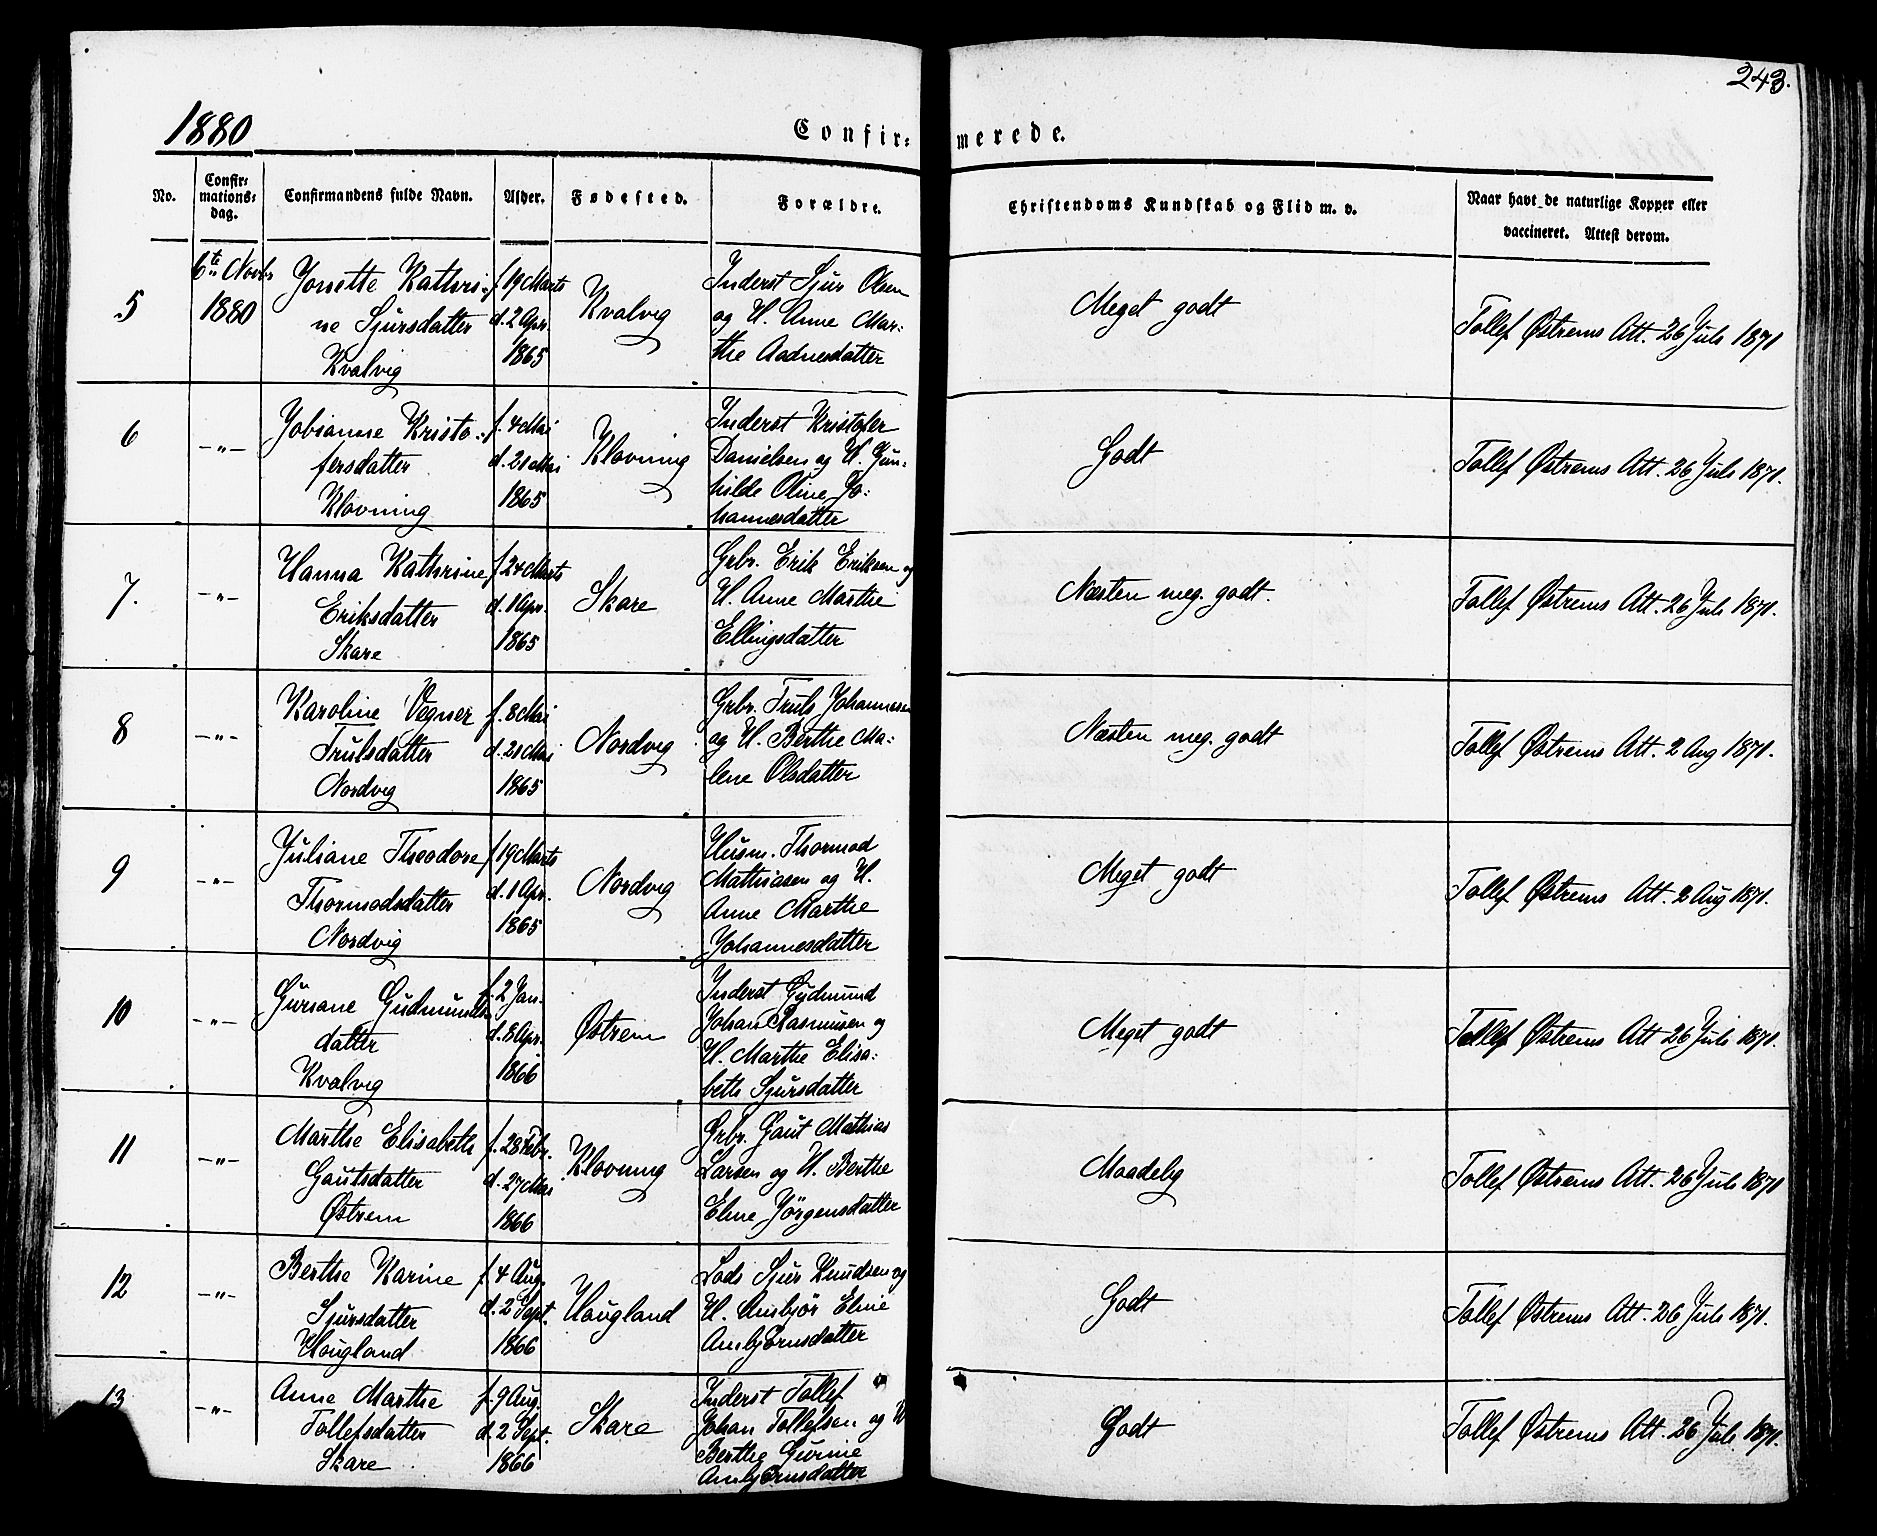 243.
1880
Confir= merede.
No.
Confir=
mations=
dag.
Confirmandens fulde Navn.
Alder.
Fødested.
Forældre.
Christendoms Kundskab og Flid m. v.
Naar havt de naturlige Kopper eller
vaccineret. Attest derom.
5
6te Novbr
1880
Jonette Kathri-
ne Sjursdatter
Kvalvig
f. 19 Marts
d. 2 Apr.
1865
Kvalvig
Inderst Sjur Olsen
og H. Anne Mar:
the Aadnesdatter
Meget godt
Tollef Østrems Att. 26 Juli 1871
6
-"-
Jobianne Kristo-
fersdatter
Klovning
f. 4 Mai
d. 21 Mai
1865
Klovning
Inderst Kristofer
Danielsen og H. Gun-
hilde Oline Jo:
hannesdatter
Godt
Tollef Østrems Att. 26 Juli 1871.
7.
-"-
Hanna Kathrine
Eriksdatter
Skare
f. 24 Marts
d. 1 Apr.
1865
Skare
Grbr. Erik Eriksen og
H. Anne Marthe
Ellingsdatter
Næsten meg. godt.
Tollef Østrems Att. 26 Juli 1871.
8
-"-
Karoline Vegner
Trulsdatter
Nordvig
f. 8 Mai
d. 21 Mai
1865
Nordvig
Grbr. Truls Johannesen
og H. Berthe Ma:
lene Olsdatter
Næsten meg. godt
Tollef Østrems Att. 2 Aug 1871.
9
-"-
Juliane Theodore
Thormodsdatter
Nordvig
f 19 Marts
d. 1 Apr.
1865
Nordvig
Husm. Thormod
Mathiasen og H.
Anne Marthe
Johannesdatter
Meget godt
Tollef Østrems Att. 2 Aug 1871.
10
-"-
Guriane Gudmunds
datter
Kvalvig
f. 2 Jan.
d. 8 Apr.
1866
Østrem
Inderst Gudmund
Johan Rasmusen og
H. Marthe Elisa:
beth Sjursdatter
Meget godt
Tollef Østrems Att 26 Juli 1871.
11
-"-
Marthe Elisabeth
Gautsdatter
Østrem
f. 28 Febr.
d. 27 Mai
1866
Klovning
Grbr. Gaut Mathias
Larsen og H. Berthe
Eline Jörgensdatter
Maadelig
Tollef Østrems Att. 26 Juli 1871
12
-"-
Berthe Karine
Sjursdatter
Hougland
f. 4 Aug.
d. 2 Sept.
1866
Hougland
Lods Sjur Knudsen og
H. Ambjør Eline
Ambjørnsdatter
Godt
Tollef Østrems Att. 26 Juli 1871.
13
-"-
Anne Marthe
Tollefsdatter
Skare
f. 9 Aug.
d. 2 Sept.
1866
Skare
Inderst Tollef
Johan Tollefsen og H
Berthe Gurine
Ambjørnsdatter
Godt
Tollef Østrems Att. 26 Juli 1871.